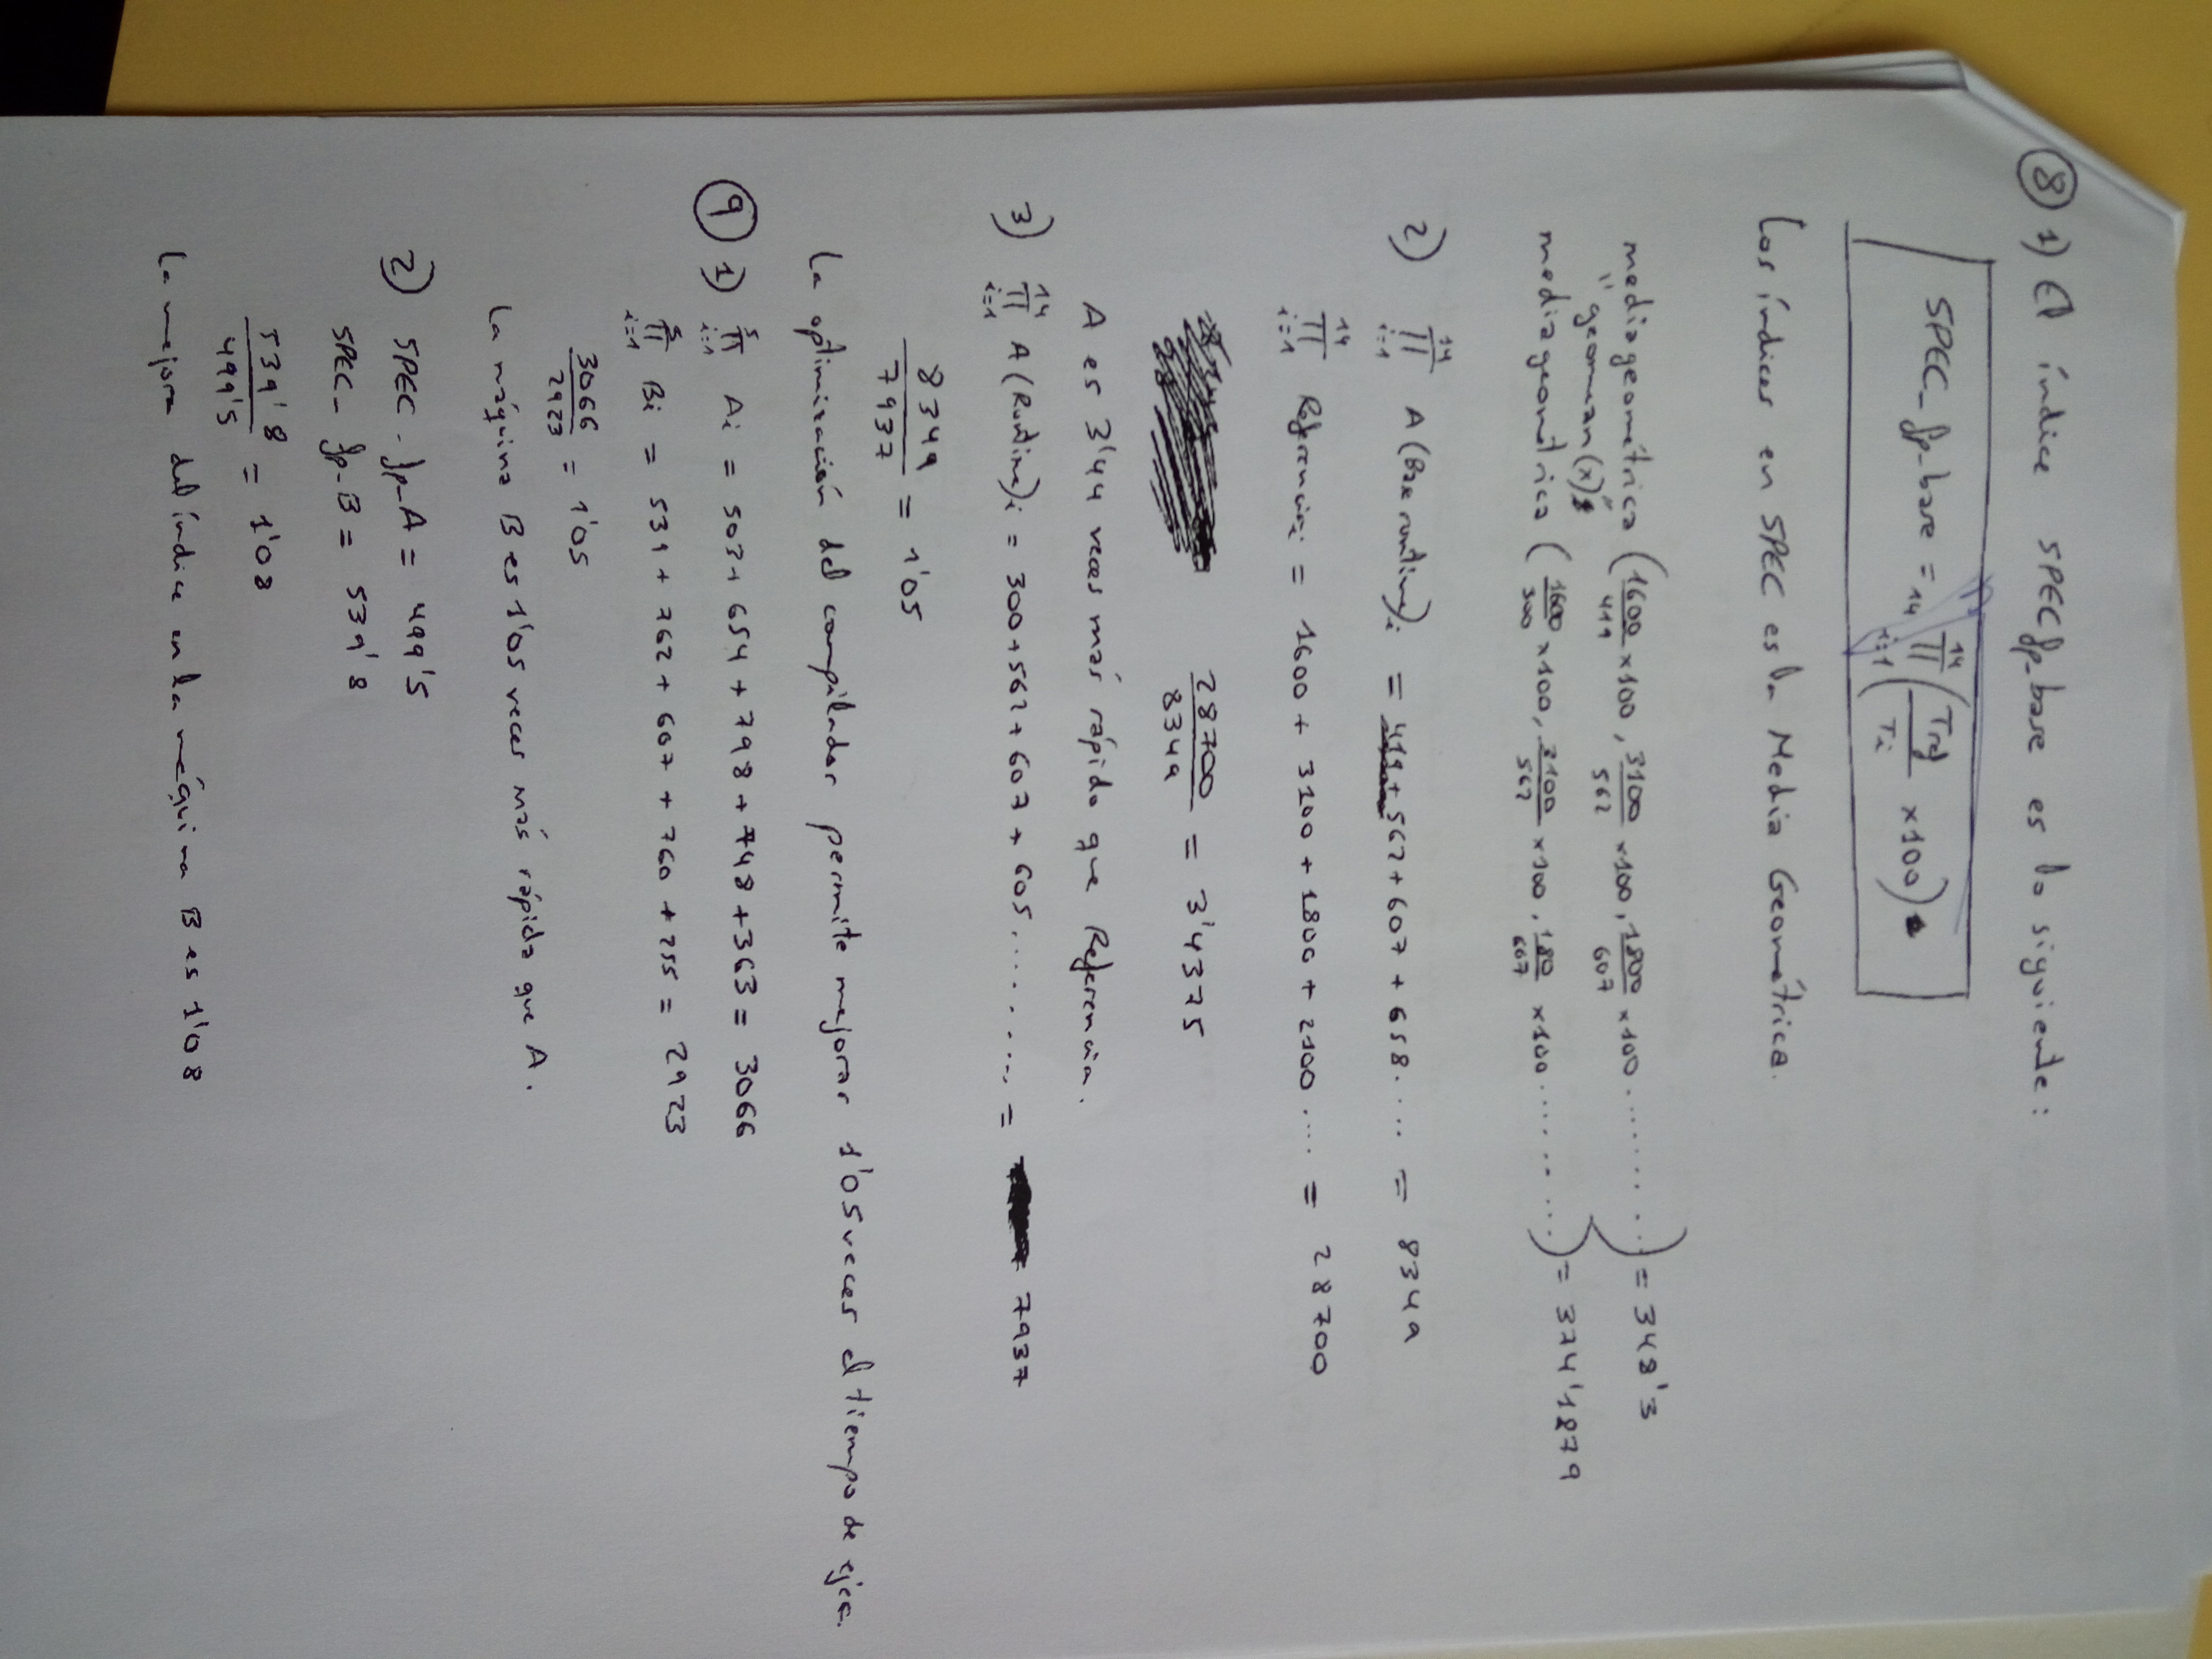 ⑧ 1) El índice SPECfp_base es lo siguiente:
SPEC_fp_base = 14√ 14 ∏ i=1 (Tref / Ti x100)
Los índices en SPEC es la Media Geométrica.
mediageométrica (1600/419 x100, 3100/562 x100, 1800/607 x100 ..........) = 348'3
"geomean(x)"
mediageométrica (1600/300 x100, 3100/562 x100, 180/607 x100 ..........) = 374'1879
2) 14 ∏ i=1 A (Base runtime)i = 419 + 562 + 607 + 658 .... = 8349
14 ∏ i=1 Referenciai = 1600 + 3100 + 1800 + 2100 .... = 28700
28700/8349 = 3'4375
A es 3'44 veces más rápido que Referencia.
3) 14 ∏ i=1 A (Runtime)i = 300 + 562 + 607 + 605 .......... = 7937
8349/7937 = 1'05
La optimización del compilador permite mejorar 1'05 veces el tiempo de ejec.
⑨ 1) 5 ∏ i=1 Ai = 503 + 654 + 798 + 748 + 363 = 3066
5 ∏ i=1 Bi = 539 + 762 + 607 + 760 + 255 = 2923
3066/2923 = 1'05
La máquina B es 1'05 veces más rápida que A.
2) SPEC_fp_A = 499'5
SPEC_fp_B = 539'8
539'8/499'5 = 1'08
La mejora del índice en la máquina B es 1'08